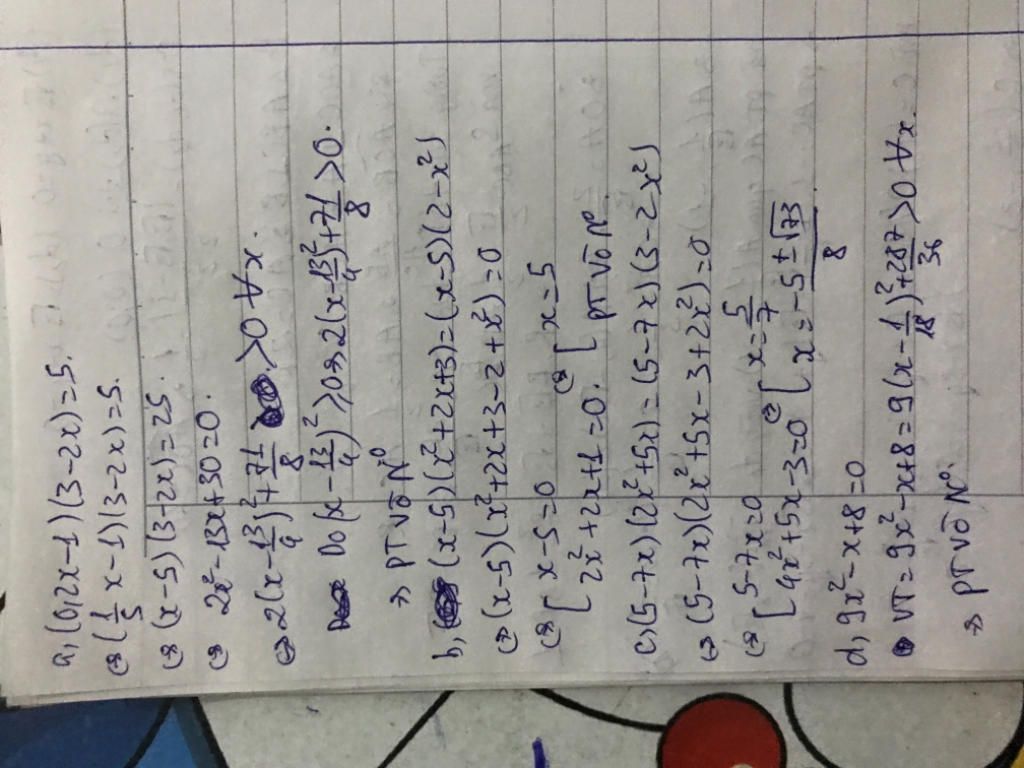 a, (0,2x-1)(3-2x)=5.
⇔ (1/5 x-1)(3-2x)=5.
⇔ (x-5)(3-2x)=25.
⇔ 2x²-13x+30=0.
⇔ 2(x-13/4)²+71/8 >0 ∀x.
Do (x-13/4)² ≥0 ⇒ 2(x-13/4)²+71/8 >0.
⇒ PT vô N⁰
b, (x-5)(x²+2x+3)=(x-5)(2-x²)
⇔ (x-5)(x²+2x+3-2+x²)=0
⇔ [ x-5=0 ⇔ [ x=5
2x²+2x+1=0. PT vô N⁰.
c, (5-7x)(2x²+5x)=(5-7x)(3-2x²)
⇔ (5-7x)(2x²+5x-3+2x²)=0
⇔ [ 5-7x=0 ⇔ [ x=5/7
4x²+5x-3=0 x=-5±√73/8
d, 9x²-x+8=0
VT=9x²-x+8=9(x-1/18)²+287/36 >0 ∀x.
⇒ PT vô N⁰.